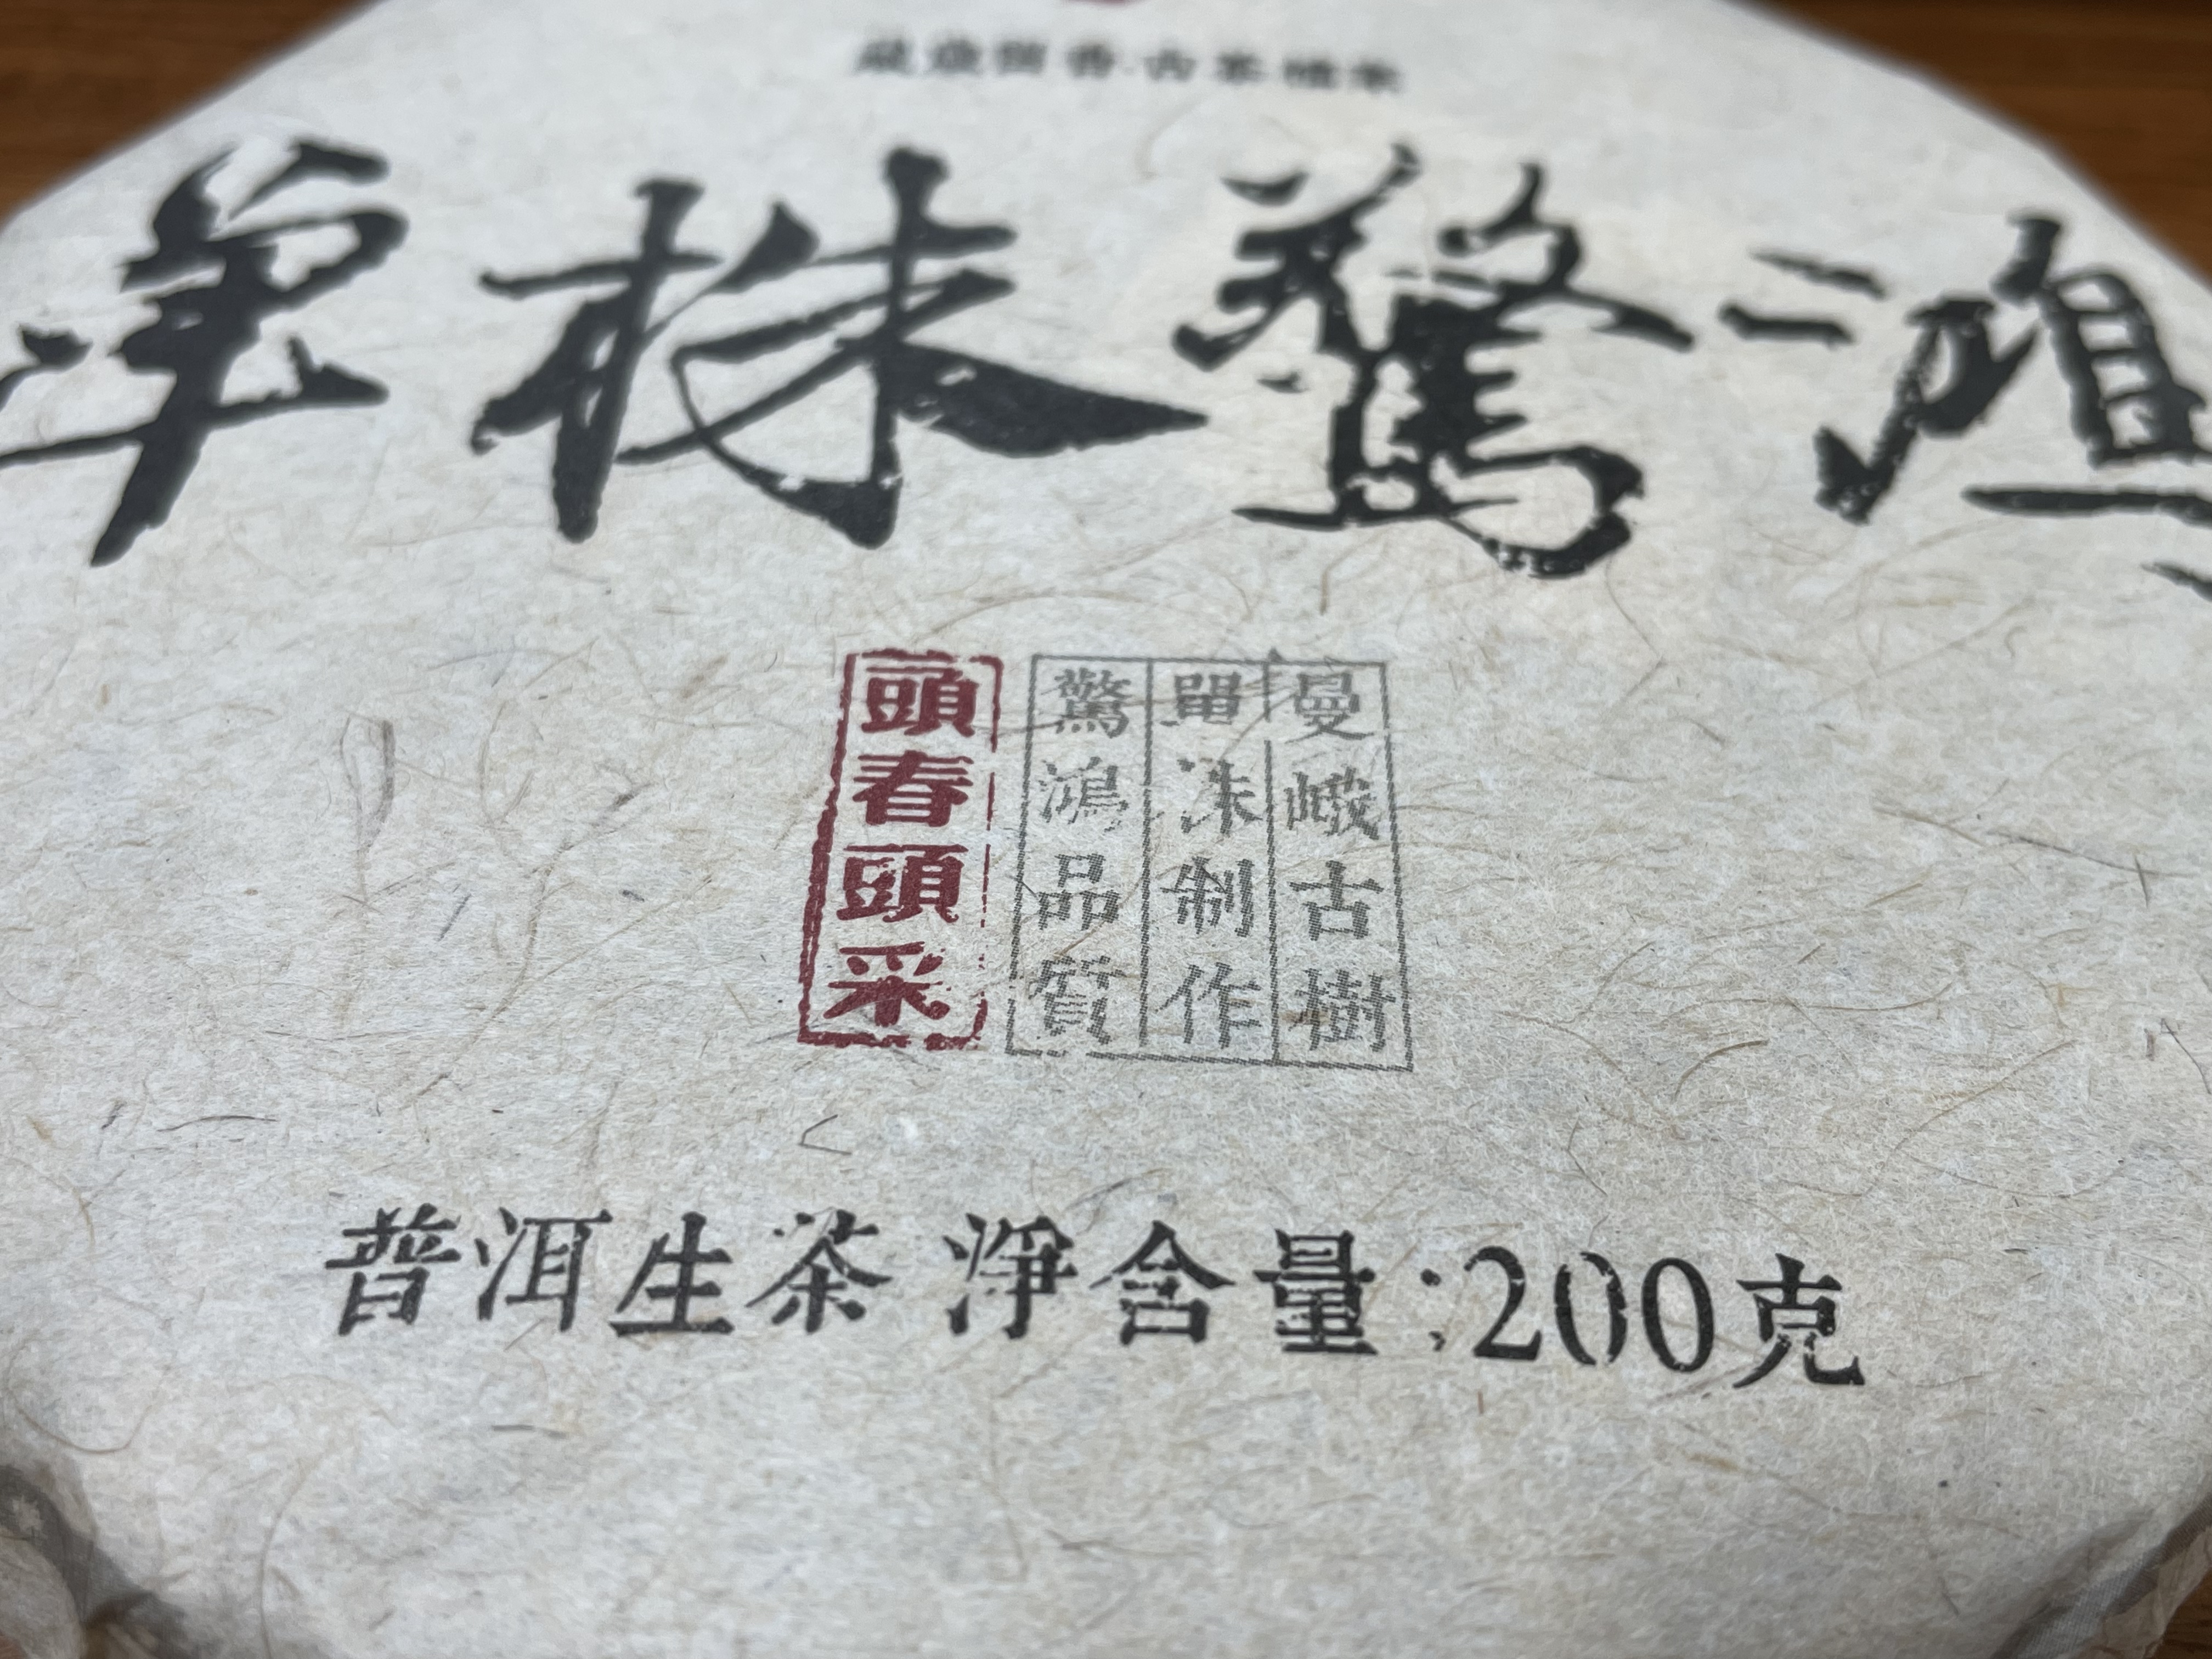 單株驚鴻
曼峨古樹
單株制作
驚鴻品質
頭春頭采
普洱生茶 淨含量:200克